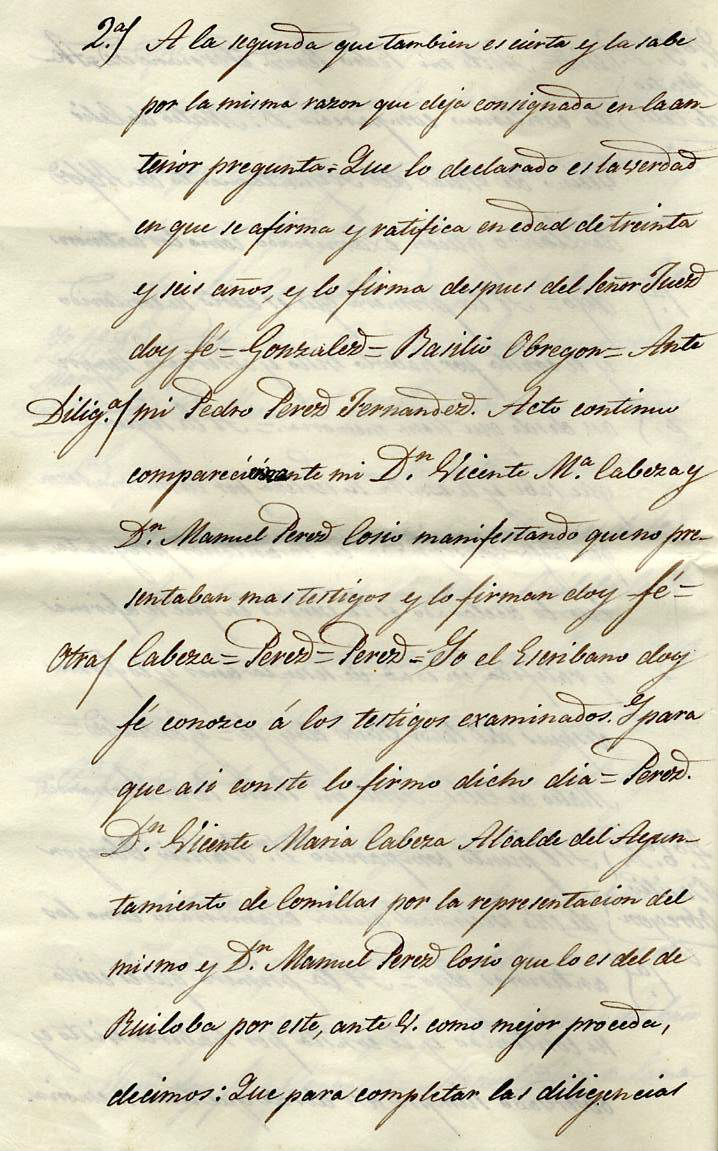 2.ª/ A la segunda que tambien es cierta y la sabe
por la misma razon que deja consignada en la an-
terior pregunta = Que lo declarado es la verdad
en que se afirma y ratifica en edad de treinta
y seis años, y lo firma despues del Señor Juez
doy fé = Gonzalez = Basilio Obregon = Ante
Dilig.ª/ mi Pedro Perez Fernandez. Acto continuo
ante mi Dn. Vicente M.ª Cabeza y
Dn. Manuel Perez Cosio manifestando que no pre-
sentaban mas testigos y lo firman doy fé =
Otra/ Cabeza = Perez = Perez = Yo el Escribano doy
fé conozco á los testigos examinados. Y para
que asi conste lo firmo dicho dia = Perez.
Dn. Vicente Maria Cabeza Alcalde del Ayun-
tamiento de Comillas por la representacion del
mismo y Dn. Manuel Perez Cosio que lo es del de
Ruiloba por este, ante V. como mejor proceda,
decimos: Que para completar las diligencias